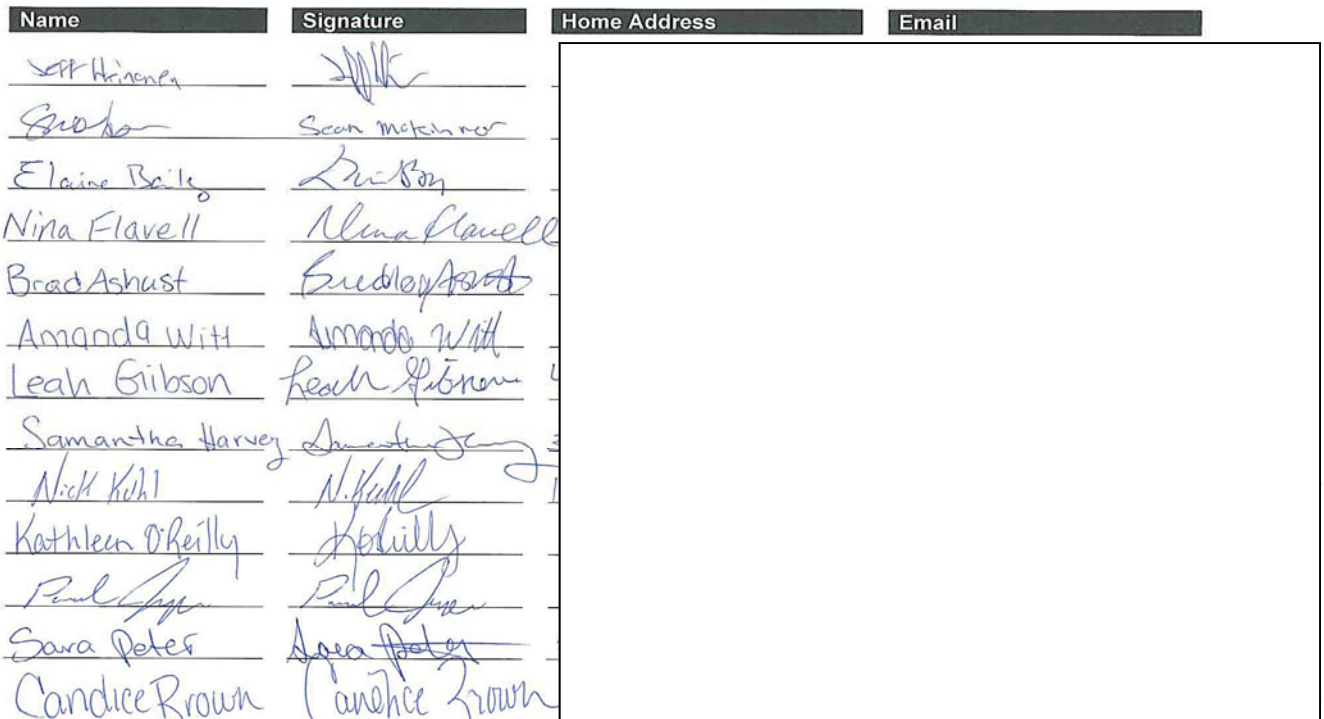 Name Signature Home Address Email
Jeff Heinonen
Sean McKinnor
Elaine Baily
Nina Flavell Nina Flavell
Brad Ashust
Amanda Witt Amanda Witt
Leah Gibson Leah Gibson
Samantha Harvey Samantha Harvey
Nick Kuhl N. Kuhl
Kathleen O'Reilly KOReilly
Paul Paul
Sara Peter Sara Peter
Candice Brown Candice Brown